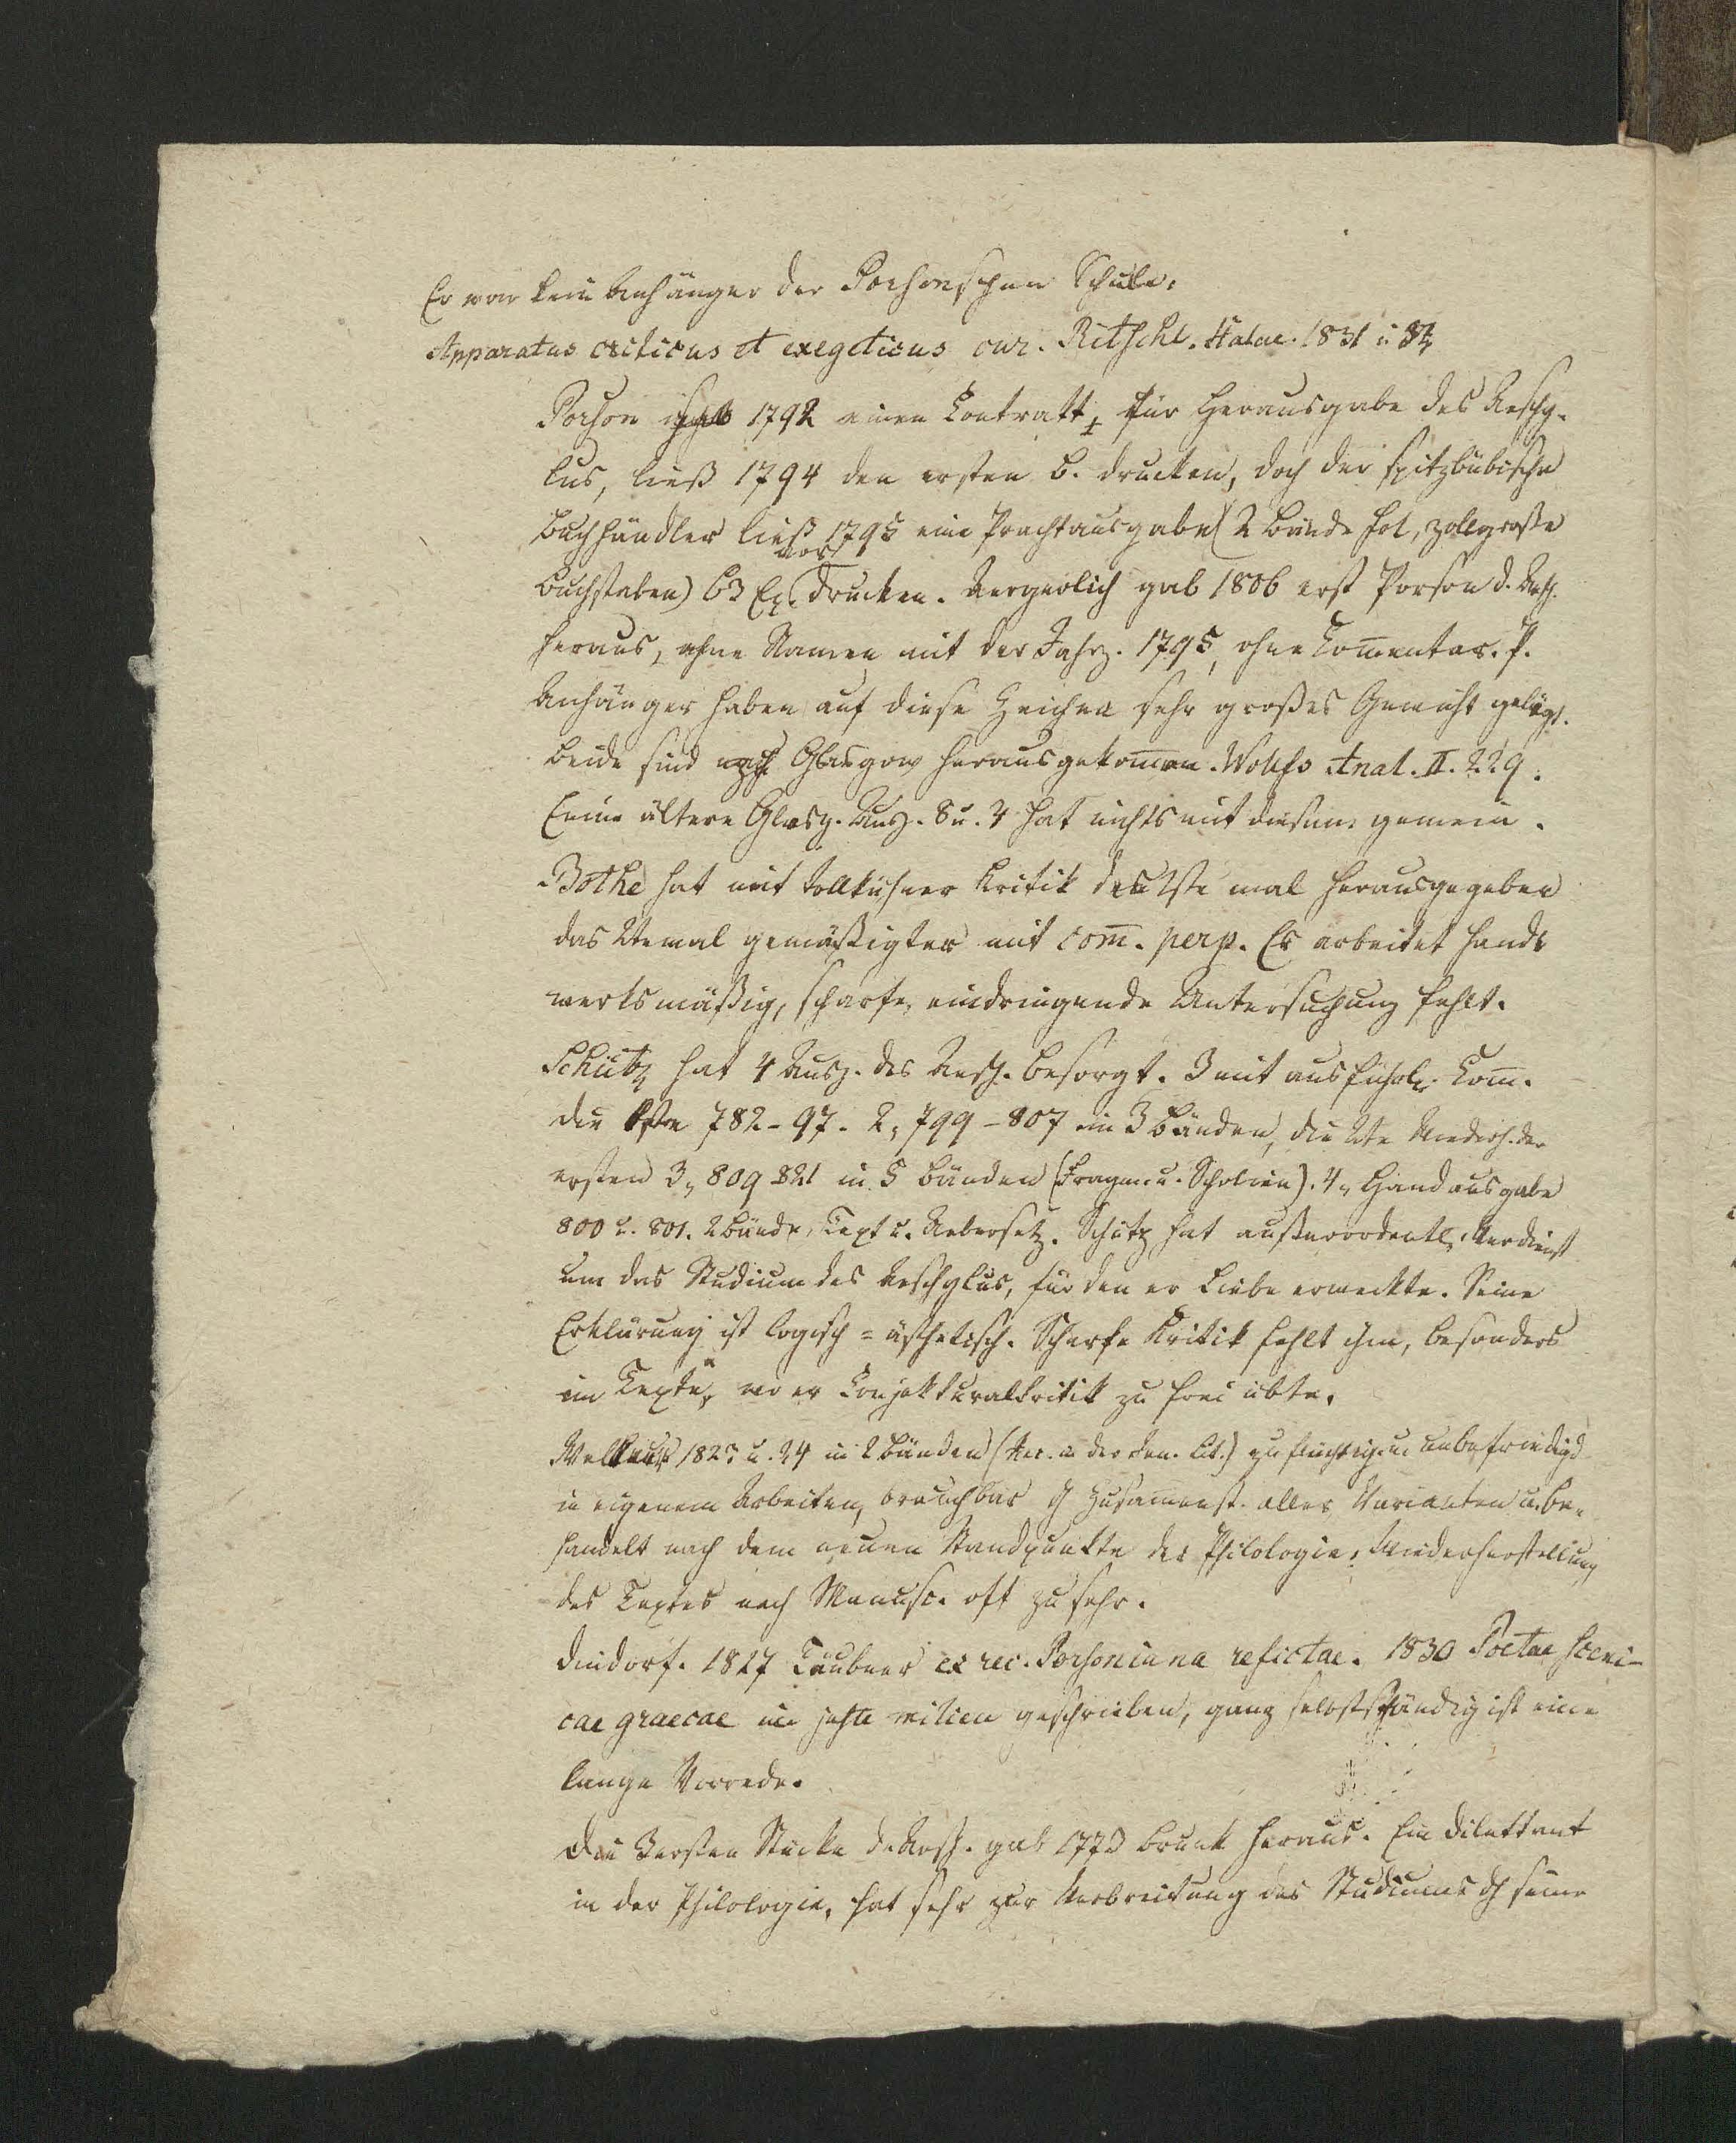 Er war kein Anhänger der Porsonschen Schule.
Apparatus criticus et exegeticus cur. Ritschl. Halae. 1831 u 32
Porson 1792 einen Contrakt, für Herausgabe des Aeschy-
lus, ließ 1794 den ersten B. drucken, doch der spitzbübische
Buchhändler ließ 1795 eine Prachtausgabe (2 Bände fol, zollgroße
Buchstaben) 63 Ex. vor drucken. Aergerlich gab 1806 erst Porson d. Aesch.
heraus, ohne Namen mit der Jahrz. 1795, ohne Com̅entar. P.
Anhänger haben auf diese Zeichen sehr großes Gewicht gelegt.
Beide sind Glasgow herausgekom̅en. Wolfs Anal. II. 229.
Eine ältere Glasg. Ausg. 8 u. 4 hat nichts mit diesem gemein.
Bothe hat mit tollkühner Kritik das 1ste mal herausgegeben
das 2temal gemäßigter mit com̅. perp. Er arbeitet hand-
werksmäßig, scharfe, eindringende Untersuchung fehlt.
Schütz hat 4 Ausg. des Aesch. besorgt. 3 mit ausführl. Com̅.
die 1ste 782-97. 2, 799-807 in 3 Bänden, die 2te Wiederh. der
ersten 3, 809-821 in 5 Bänden (Fragm. u. Scholien). 4, Handausgabe
800 u. 801. 2 Bände, Text u. Uebersetz. Schütz hat außerordentl. Verdienst
um das Studium des Aeschylus, für den er Liebe erweckte. Seine
Erklärung ist logisch = ästhetisch. Scharfe Kritik fehlt ihm, besonders
im Texte, wo er Conjekturalkritik zu frei übte.
Wellauer 1823 u. 24 in 2 Bänden (Rec. in der Jen. Lit.) zu flüchtig u. unbefriedigd
in eigenem Arbeiten, brauchbar d Zusam̅enst. aller Varianten u. be-
handelt nach dem neuen Standpunkte der Philologie; Wiederherstellung
des Textes nach Manusc. oft zu sehr.
Dindorf. 1827 Teubner ex rec. Porsoniana refictae. 1830 Poetae sceni-
cae graecae geschrieben, ganz selbstständig ist eine
lange Vorrede.
Die 3 ersten Stücke d. Aesch. gab 1779 Brunk heraus. Ein Dilettant
in der Philologie, hat sehr zur Verbreitung des Studiums dch seine